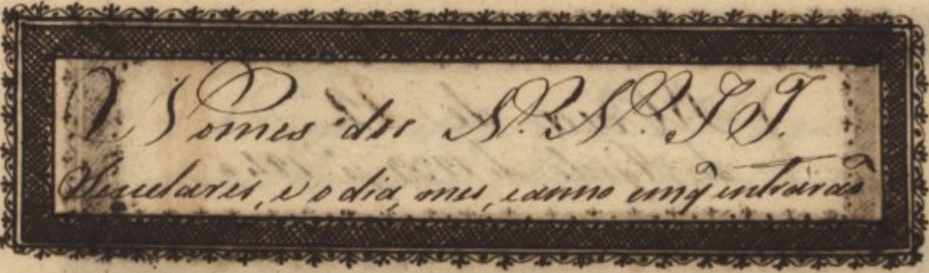 Nomes dos N. N. I I.
Seculares, e o dia, mes, e anno em q̃ entrarão